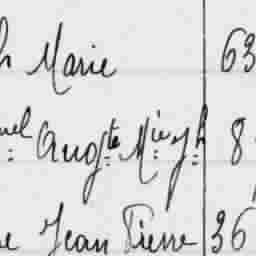 h Marie 63
uel Aug.te M.ie J.h 8
e Jean Pierre 36